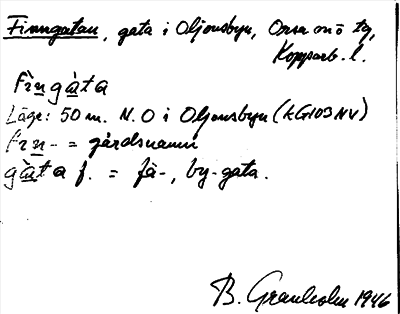 Finngatan, gata i Oljonsbyn, Orsa ortsö tg,
Kopparb. l.
Fìngàta
Läge: 50 m. N.O i Oljonsbyn (KG103NV)
Fin- = gårdsnamn
gàta f. = fä-, by-gata.
B. Granholm 1946